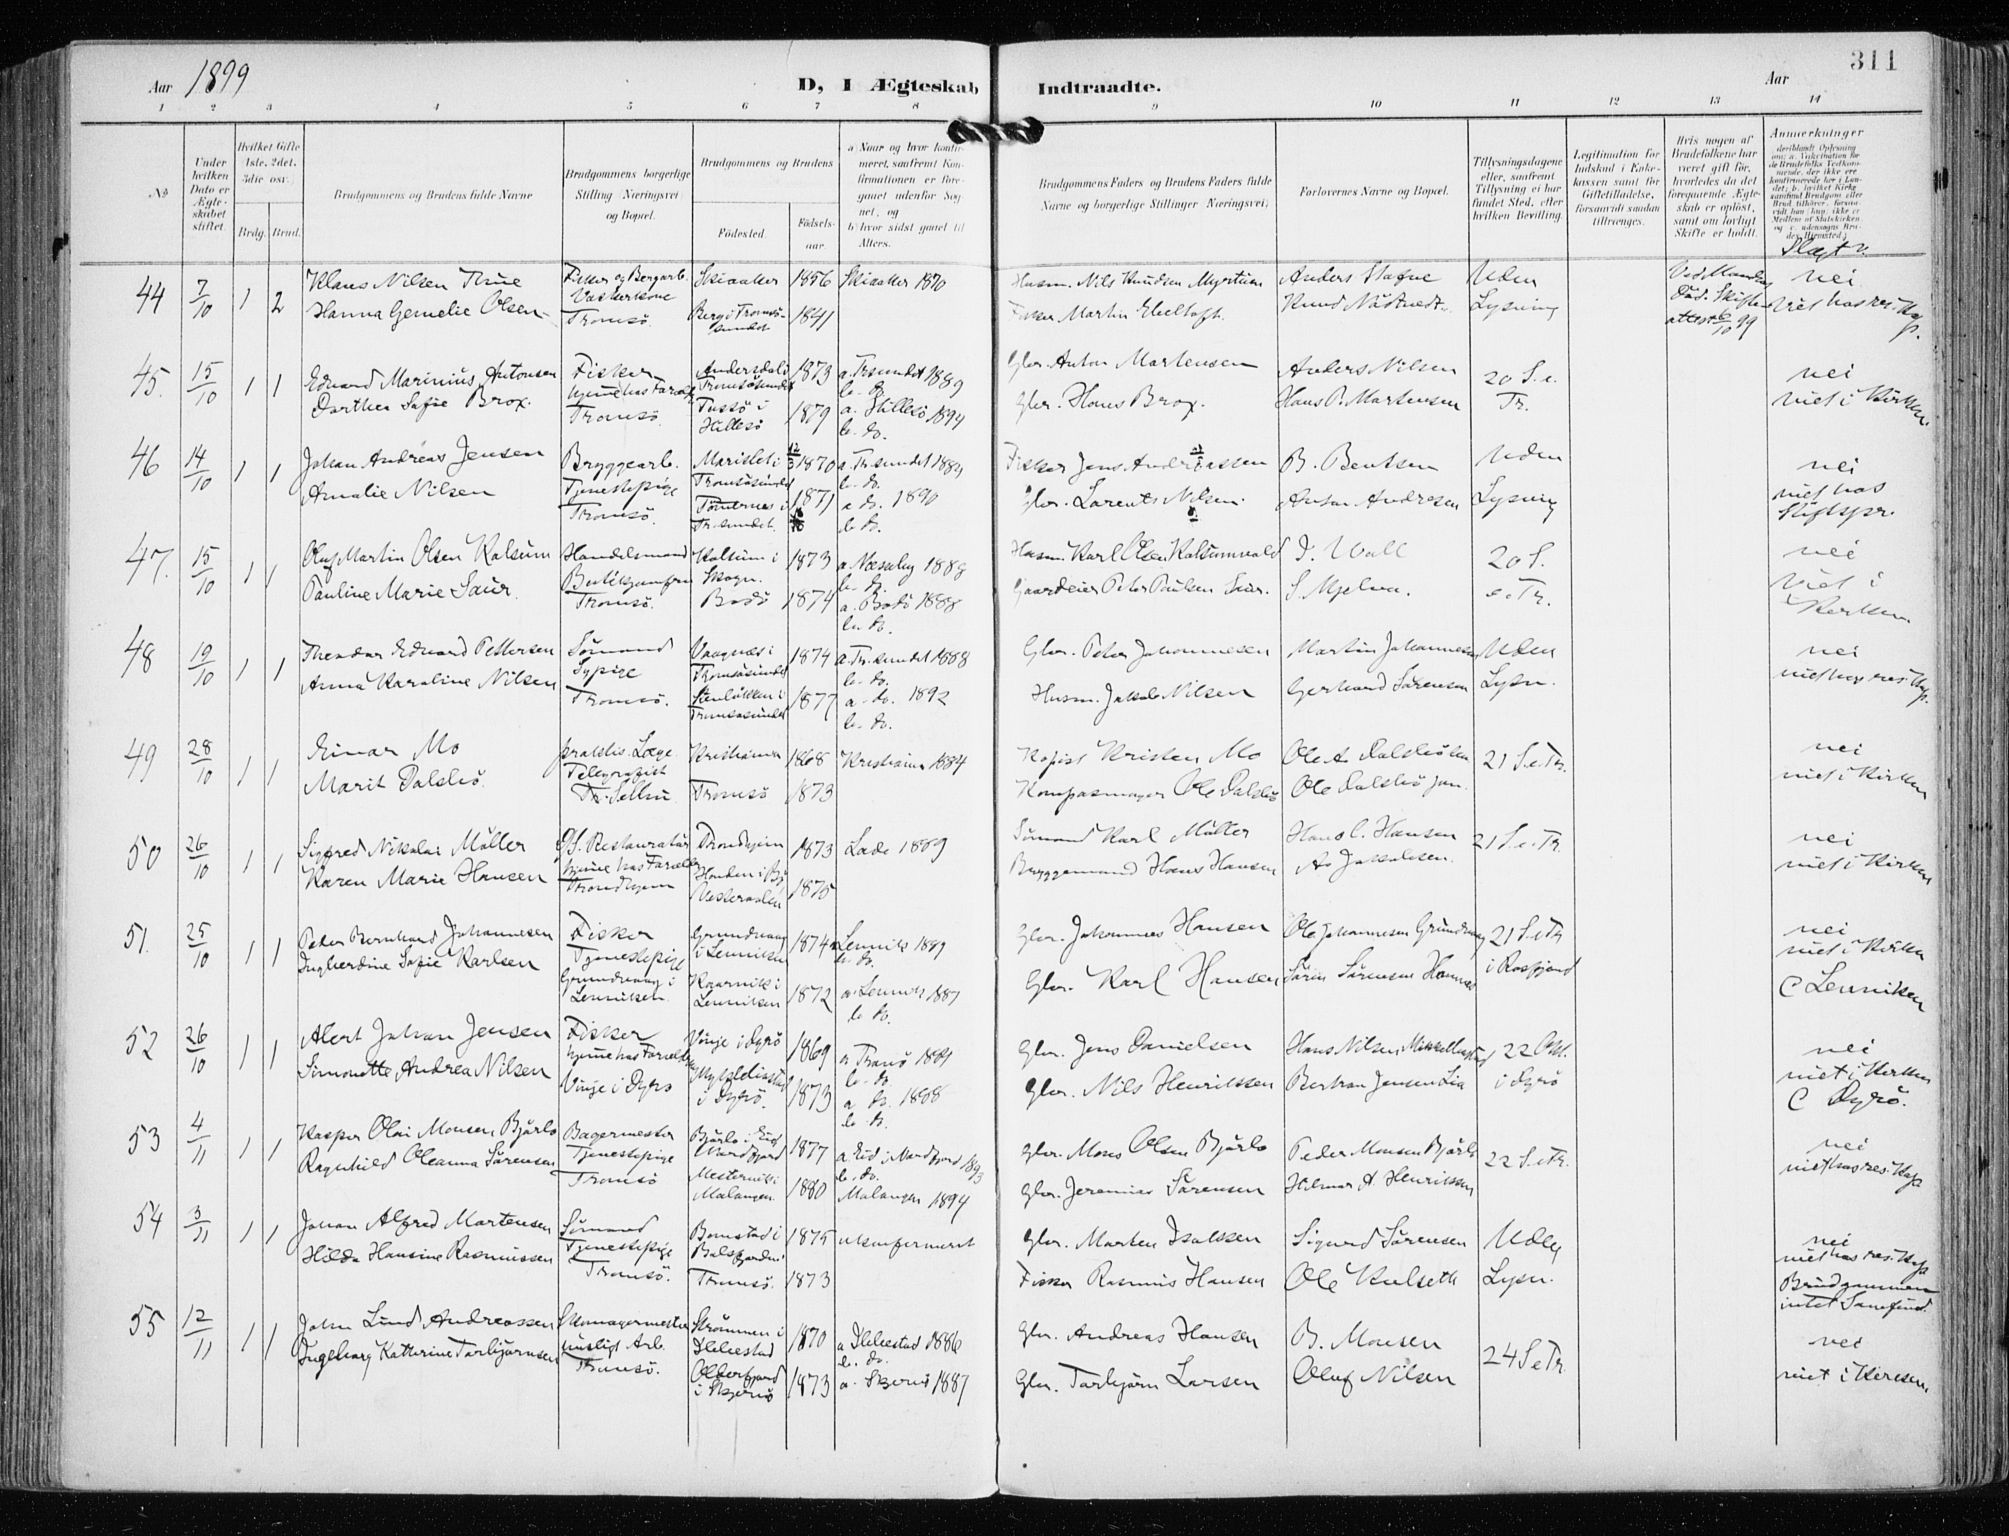 311
Aar 1899
D, I Ægteskab Indtraadte.
Aar
1 2 3 4 5 6 7 8 9 10 11 12 13 14
No
Under hvilken Dato er Ægteskabet stiftet.
Hvilket Gifte 1ste, 2det, 3die osv.
Brdg. Brud.
Brudgommens og Brudens fulde Navne
Brudgommens borgerlige Stilling Næringsvei og Bopæl.
Brudgommens og Brudens
Fødested.
Fødselsaar.
a) Naar og hvor konfirmeret, samfremt Konfirmationen er foregaaet udenfor Sognet, og
b) hvor sidst gaaet til Alters.
Brudgommens Faders og Brudens Faders fulde Navne og borgerlige Stillinger Næringsvei;
Forlovernes Navne og Bopæl.
Tillysningsdagene eller, samfremt Tillysning ei har fundet Sted, efter hvilken Bevilling.
Legitimation for Indskud i Enkekassen samt for Giftetilladelse, forsaavidt saadan tiltrænges.
Hvis nogen af Brudefolkene har været gift før, hvorledes da det foregaaende Ægteskab er opløst, samt om lovligt Skifte er holdt.
Anmerkninger
Slegt
44 7/10 1 2 Klaus Nilsen Thue Fisker og Bergarb. Skiaaker 1856 Skiaaker 1870 Husm. Nils Knudsen Myrtuen Anders Stafne Uden nei
Hanna Gemelie Olsen Vaskerkone Tromsö Berg i Tromsösundet 1841 Fisker Martin Ebeltoft Knud Lysning
45. 15/10 1 1 Edvard Marinius Antonsen Fisker Andersdal Tromsösundet 1873 a. Tr.sundet 1889 b. do. Gbr. Anton Martensen Anders Nilsen 20 S. e. nei
Dorthea Sofie Brox. hjemme hos Foræld Tromsö. Tussö i Hillesö 1879 a. Hillesö 1894 b. do. Gbr. Hans Brox. Hans P. Martensen Tr. viet i Kirken.
46 14/10 1 1 Johan Andreas Jensen Bryggearb. Tromsösundet 1870 a. Tr.sundet 1884 b. do. Fisker Jens Andreassen B. Bentsen Uden nei
Amalie Nilsen Tjenestepige Tromsö. Tr.sundet. 1871 a do. 1890 b do. Gbr. Lorents Nilsen. Anton Andresen Lysning viet hos Stiftspr.
47. 15/10 1 1 Oluf Martin Olsen Kolsum Handelsmand Kolsum i Skogn. 1873 a. Næsseby 1888 b. do. Husm. Karl Olsen Kolsumvald J. Wall 20 S. nei
Pauline Marie Saur. Butikjomfru Tromsö. Bodö 1874 a. Bodö 1888 b. do. Gaardeier Peter Paulsen Saur. S. Mjelva. e. Tr. Viet i Kirken
48 19/10 1 1 Theodor Edvard Pettersen Sömand Vaagnæs i Tromsösundet 1874 a. Tr.sundet 1888 b. do. Gbr. Peter Johannesen Martin Johannesen Uden nei
Anna Karoline Nilsen Sypige Tromsö. Tromsösundet 1877 a. do. 1892 b. do. Husm. Jakob Nilsen Gerhard Sörensen Lysn. viet hos res. Kap.
49 28/10 1 1 Einar Mo praktis. Læge. Kristiania 1868 Kristiania 1884 Kopist Kristen Mo Ole A Dalslö sen 21 S. e. Tr. nei
Marit Dalslö. Telegrafist Tromsö 1873 Kompasmager Ole Dalslö Ole Dalslö jun. viet i Kirken
50 26/10 1 1 Sigfred Nikolai Möller Restauratör Trondhjem 1873 Lade 1889 Sömand Karl Möller Hans C. Hansen 21 S. e. Tr. nei
Karen Marie Hansen hjemme hos Forældre Trondhjem Vesteraalen 1875 Bryggemand Hans Hansen viet i Kirken
51. 25/10 1 1 Peter Bernhard Johannesen Fisker Grundvaag i Lenviken 1874 Lenvik 1889 b. do. Gbr. Johannes Hansen Ole Johannesen Grundvaag 21 S. e Tr nei
Ingberdine Sofie Karlsen Tjenestepige Grundvaag i Lenviken. Kaarvik i Lenviken 1872 a. Lenvik 1887 b do. Gbr. Karl Hansen Sören Sörensen i Rosfjord viet i Kirken C Lenviken
52 26/10 1 1 Alert Johan Jensen Fisker Vinje i Dyrö 1869 a Tranö 1884 b. do. Gbr. Jens Danielsen Hans Nilsen 22 Okt. nei
Simonette Andrea Nilsen hjemme hos Forældre Vinje i Dyrö i Dyrö. 1873 a do. 1888 b do. Gbr. Nils Henrikssen Bertran Jensen Lia i Dyrö viet i Kirken C Dyrö.
53 4/11 1 1 Kasper Olai Monsen Bjørlo Bagermester Bjørlo i Eid Nordfjord 1877 a Eid i Nordfjord 1893 b. do. Gbr. Mons Olsen Bjørlo Peder Monsen Bjørlo 22 S. e Tr. nei
Ragnhild Oleanna Sörensen Tjenestepige Tromsö Mestervik i Malangen 1880 Malangen 1894 Gbr. Jeremias Sörensen Hilmar A. Henrikssen viet hos res. Kap
54 3/11 1 1 Johan Alfred Martensen Sömand Bomstad i Balsfjorden 1875 ukonfirmeret Gbr. Morten Isakssen Sigurd Sörensen Uden nei
Hilda Hansine Rasmussen Tjenestepige Tromsö. Tromsö. 1873 Fisker Rasmus Hansen Ole Kulseth Lysn. viet hos res. Kap Brudgommen intet Samfund.
55 12/11 1 1 John Lund Andreassen Skomagermester Strömmen i Ibbestad 1870 a Ibbestad 1886 b. do. Gbr. Andreas Hansen B. Monsen 24 S e Tr. nei
Ingeborg Katherine Torbjørnsen husligt Arb. Tromsö. i Skjervö 1873 a. Skjervö 1887 Gbr. Torbjörn Larsen Oluf Nilsen viet i Kirken.